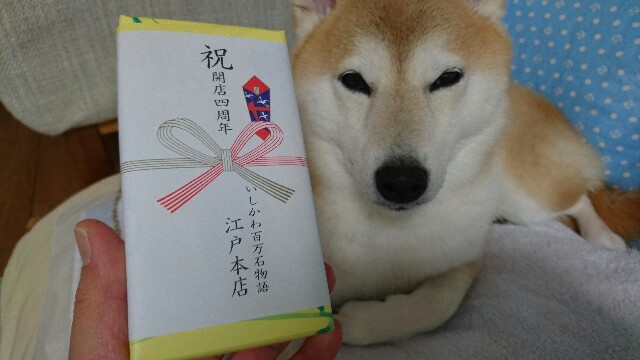 祝
開店四周年
いしかわ百万石物語
江戸本店